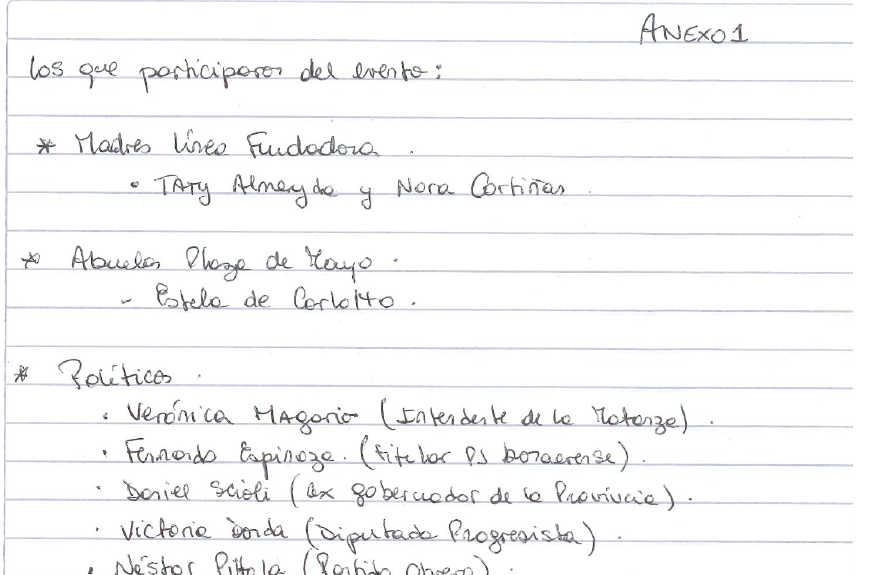 ANEXO1
los que participaron del evento:
* Madres línea Fundadora.
• TATy Almeyda y Nora Cortiñas.
* Abuelas Plaza de Mayo.
- Estela de Carlotto.
* Políticos.
• Verónica MAgario (Intendente de la Matanza).
• Fernando Espinoza. (titular PJ bonaerense).
• Daniel Scioli (ex gobernador de la Provincia).
• Victoria Donda (Diputada Progresista).
• Néstor Pitrola (Partido Obrero).